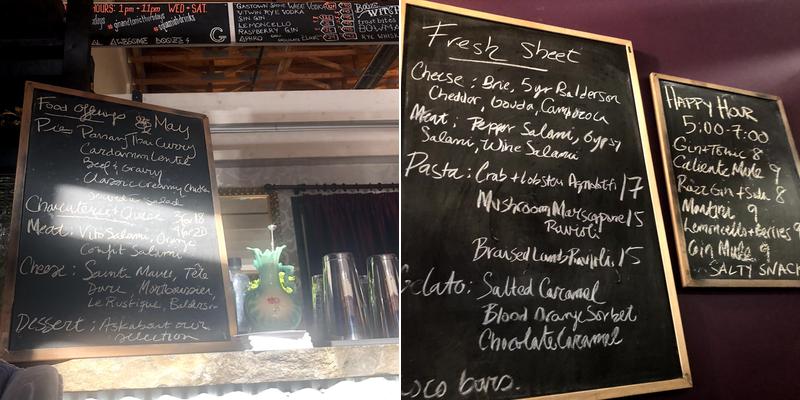 HOURS: 1pm - 11pm WED + SAT.
#ginandtonicthursdays
AL AWESOME
G
GASTOWN SHINE WHEE VODKA
V.TWIN RYE VODKA
SIN GIN
LEMONCELLO
RASPBERRY GIN
APHRO
frost bites
BOWMA
RYE WHISK
Food offerings May
Pies Panang Thai Curry
Cardamom Lentil
Beef & Gravy
Classic creamy Chicken
salad
Charcuterie + Cheese 3 for 18
Meat: Vito Salami, Orange
Confit Salami
Cheese: Sainte Maure, Tête
Dure,
Le Rustique, Balderson
Dessert: Ask about our
selection
Fresh Sheet
Cheese: Brie, 5 yr Balderson
Cheddar, Gouda, Cambozola
Meat: Pepper Salami, Gypsy
Salami, Wine Salami
Pasta: Crab + lobster Agnolotti /17
Mushroom Marscapone /15
Ravioli
Braised Lamb Ravioli /15
Gelato: Salted Caramel
Blood Orange Sorbet
Chocolate Caramel
sco bars.
HAPPY HOUR
5:00-7:00
Gin + Tonic 8
Caliente Mule 9
Razz Gin + Soda 8
Martini 9
Lemoncello + Berries 9
Gin Mule 9
... SALTY SNACK